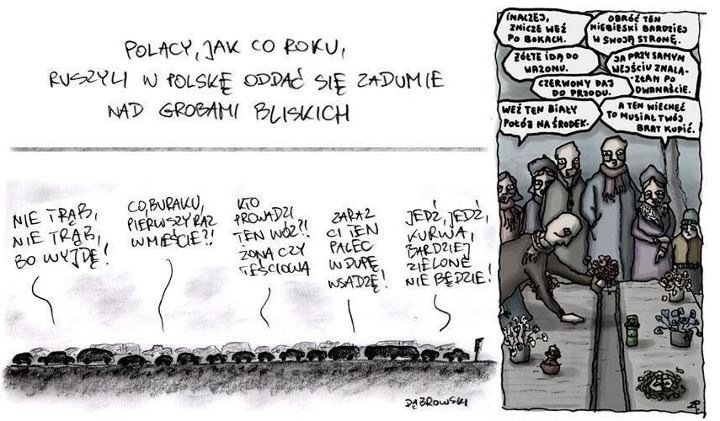 POLACY, JAK CO ROKU,
RUSZYLI W POLSKĘ ODDAĆ SIĘ ZADUMIE
NAD GROBAMI BLISKICH
NIE TRĄB,
NIE TRĄB,
BO WYJDĘ!
CO, BURAKU,
PIERWSZY RAZ
W MIEŚCIE?!
KTO
PROWADZI
TEN WÓZ?!
ŻONA CZY
TEŚCIOWA
ZARAZ
CI TEN
PALEC
W DUPĘ
WSADZĘ!
JEDŹ, JEDŹ,
KURWA,
BARDZIEJ
ZIELONE
NIE BĘDZIE!
DĄBROWSKI
INACZEJ,
ZNICZE WEŹ
PO BOKACH.
OBRÓĆ TEN
NIEBIESKI BARDZIEJ
W SWOJĄ STRONĘ.
ŻÓŁTE IDĄ DO
WAZONU.
JA PRZY SAMYM
WEJŚCIU ZNALA-
ZŁAM PO
DWANAŚCIE.
CZERWONY DAJ
DO PRZODU.
WEŹ TEN BIAŁY
POŁÓŻ NA ŚRODEK.
A TEN WIECHEĆ
TO MUSIAŁ TWÓJ
BRAT KUPIĆ.